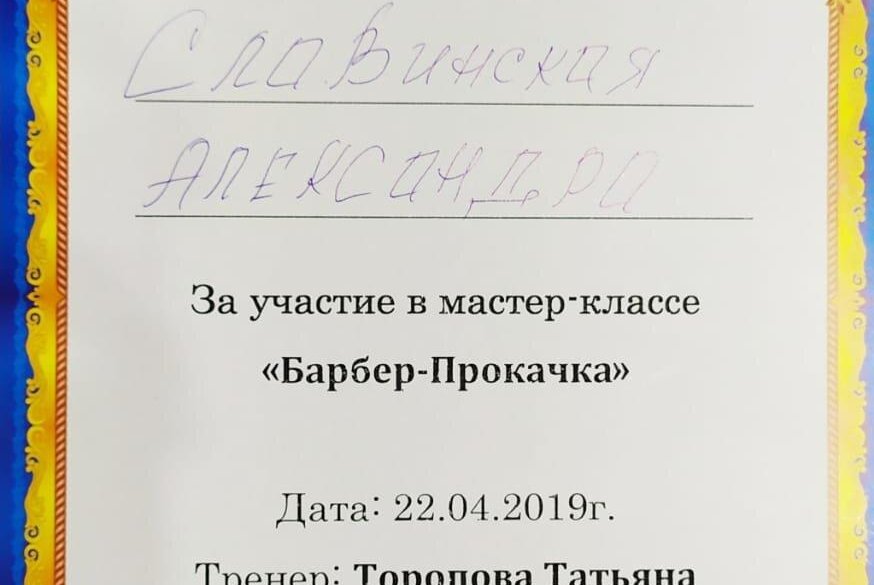 Славинская
АЛЕКСАНДРА
За участие в мастер-классе
«Барбер-Прокачка»
Дата: 22.04.2019г.
Тренер: Торопова Татьяна